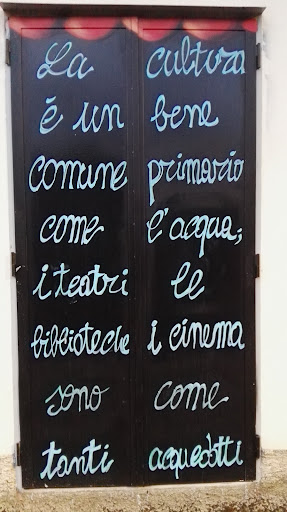 La cultura
é un bene
comune primario
come l'acqua;
i teatri le
biblioteche i cinema
sono come
tanti acquedotti